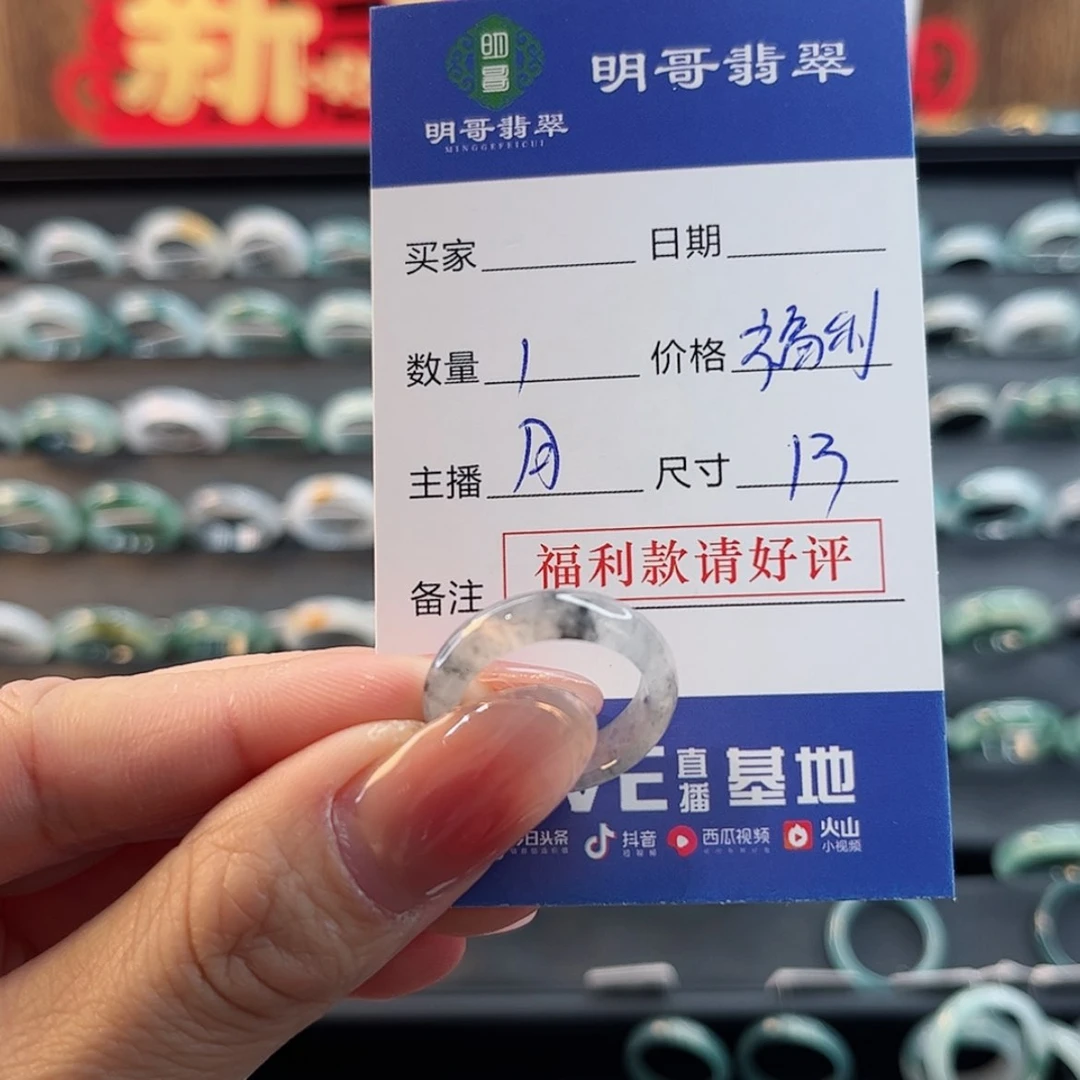 新
明哥
明哥翡翠
MINGGEFEICUI
明哥翡翠
买家 日期
数量 1 价格 福利
主播 月 尺寸 13
备注 福利款请好评
VE 直播 基地
今日头条 抖音 西瓜视频 火山小视频